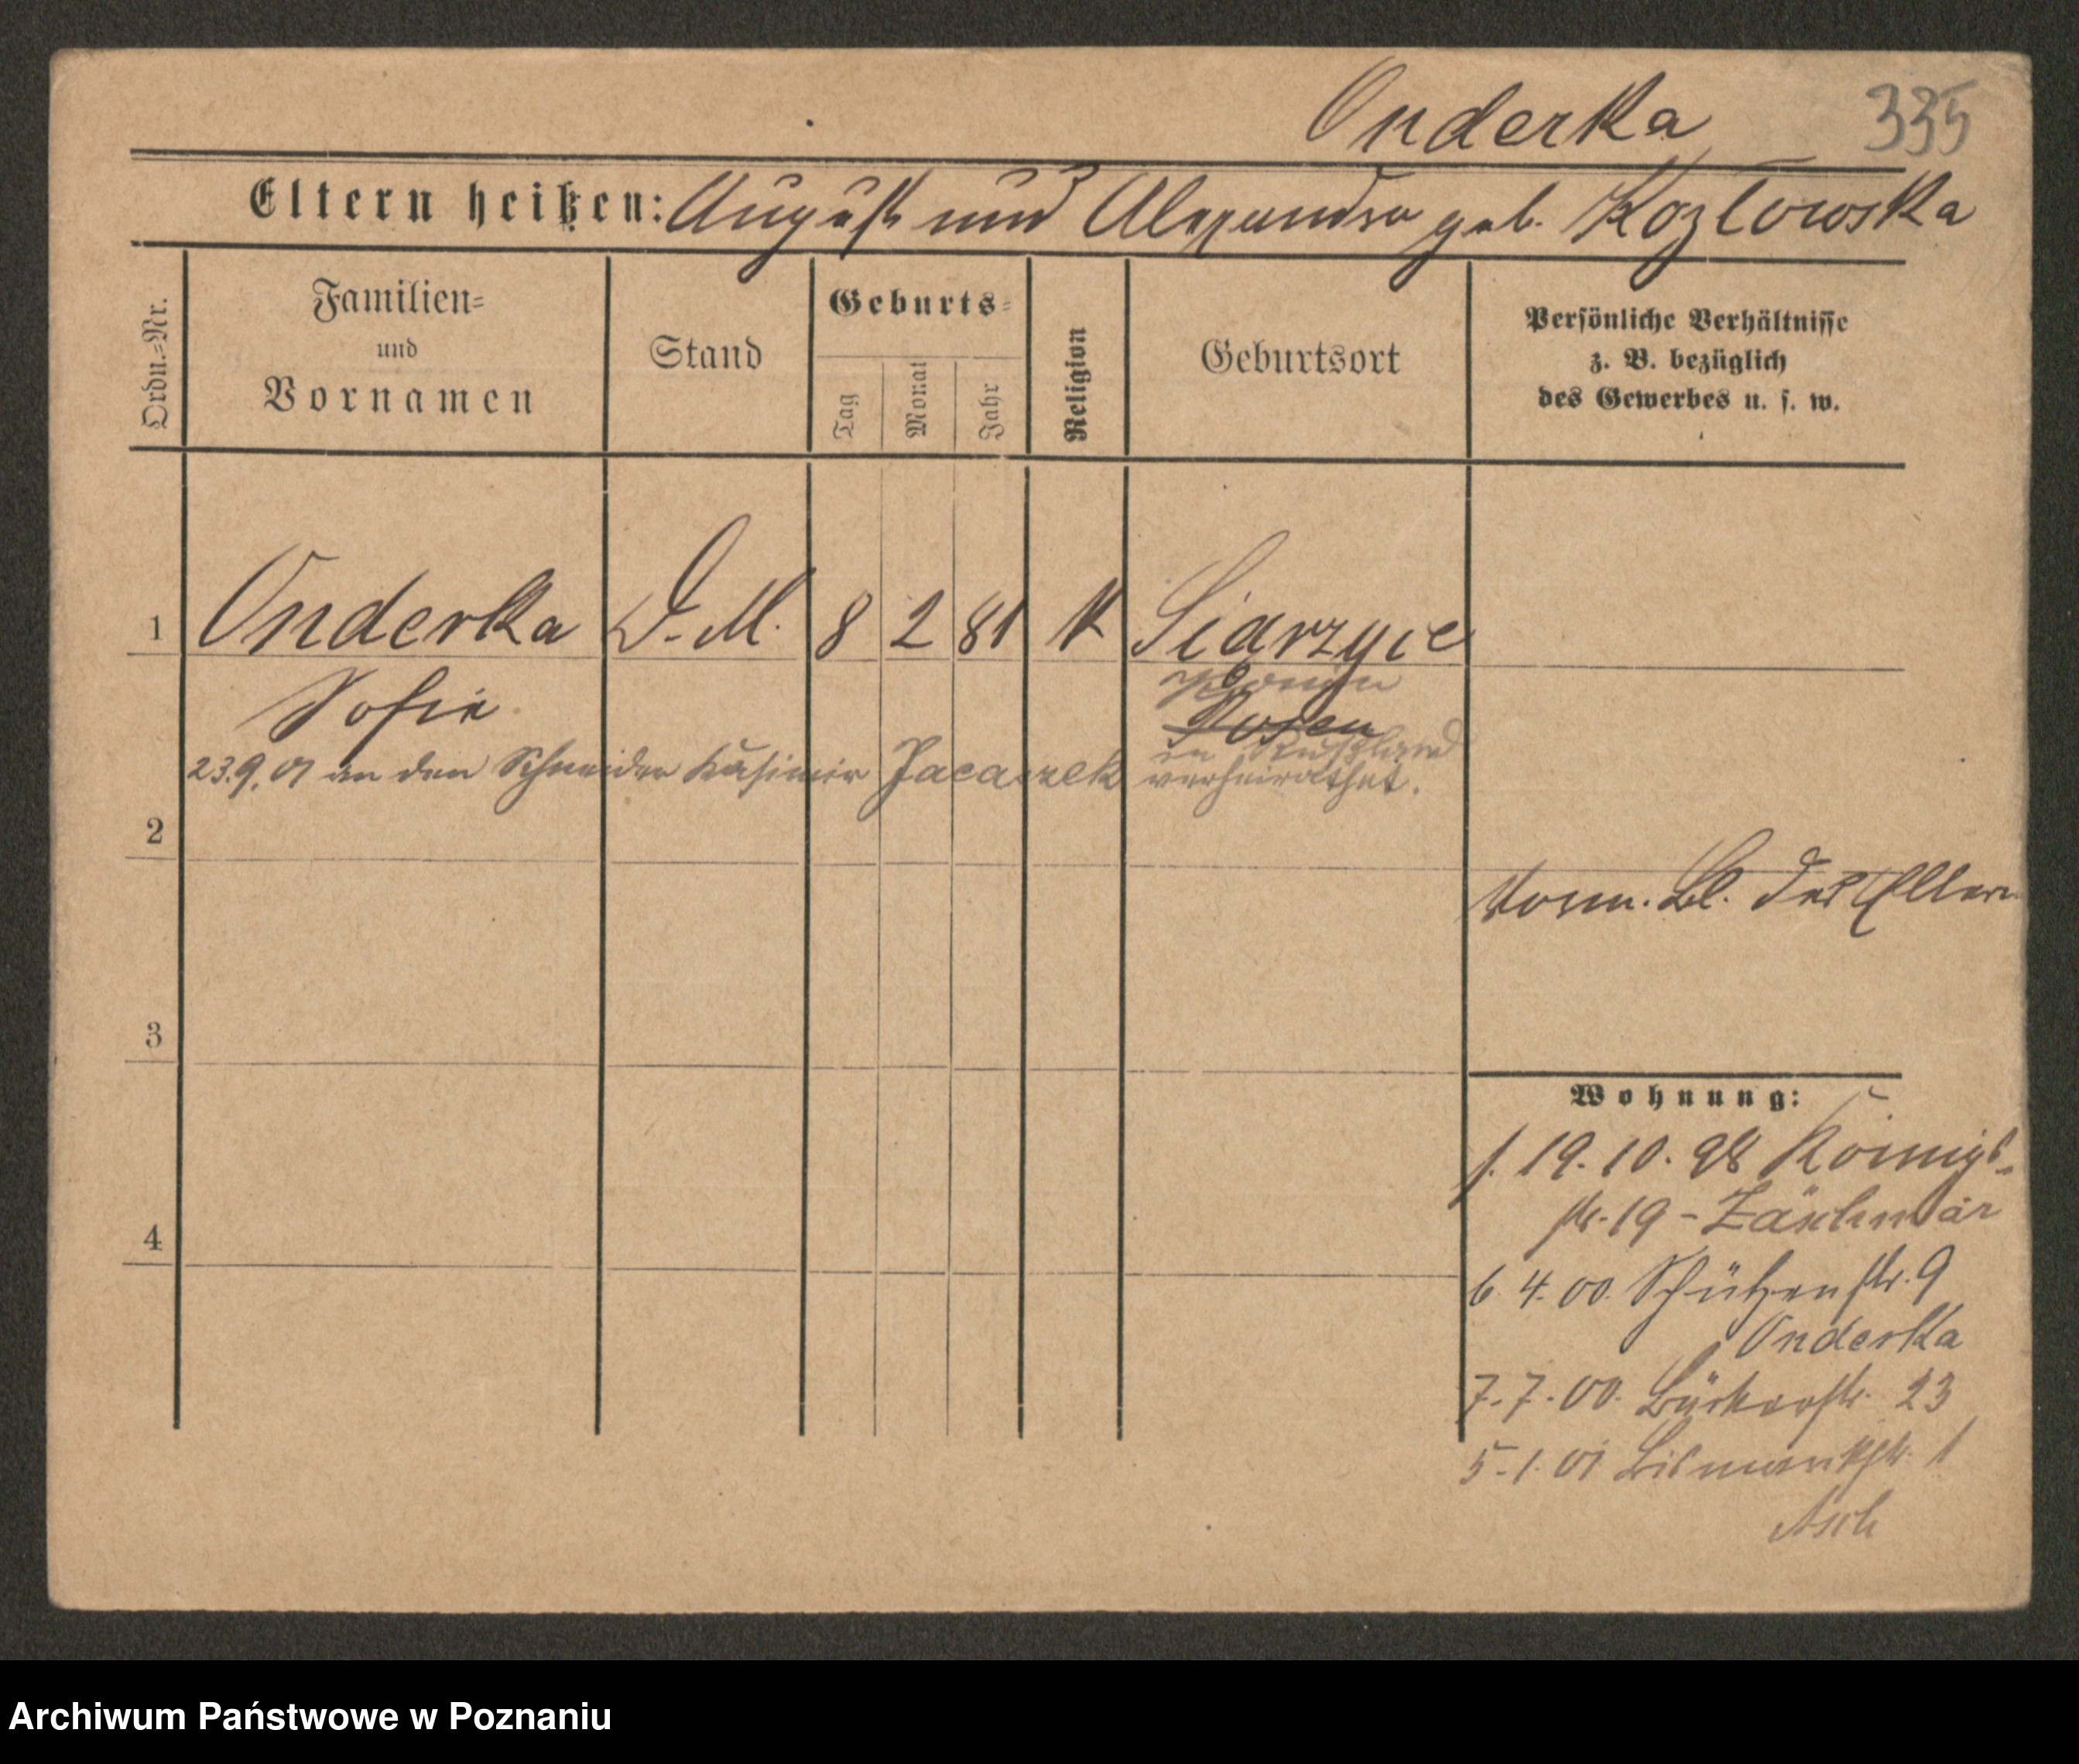 Onderka 335
Eltern heißen: August und Alexandra geb. Kozlowska
Ordn.=Nr.
Familien=
und
Vornamen
Stand
Geburts=
Tag
Monat
Jahr
Religion
Geburtsort
Persönliche Verhältnisse
z. B. bezüglich
des Gewerbes u. s. w.
1 Onderka D. M. 8 2 81 K Siarzyce
Sofie
Posen
in Rußland
23.9.01 an den Schneider Kasimir Jacaszek verheirathet.
2
Vorm. Bl. des Eltern
3
Wohnung:
f. 19.10.98 Königs-
str. 19 -
4
6. 4. 00. Schützenstr. 9
Onderka
7. 7. 00. 23
5. 1. 01 Bismarkstr. 1
Asch
Archiwum Państwowe w Poznaniu